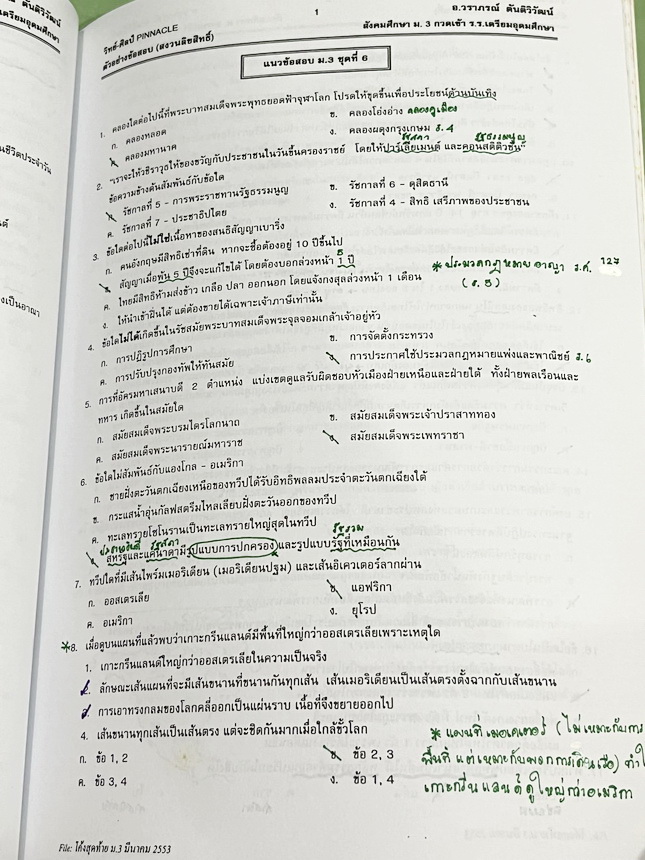 วิทย์-ศิลป์ PINNACLE
1
อ.วราภรณ์ ตันติวิวัฒน์
ตัวอย่างข้อสอบ (สงวนลิขสิทธิ์)
สังคมศึกษา ม. 3 กวดเข้า ร.ร.เตรียมอุดมศึกษา
แนวข้อสอบ ม.3 ชุดที่ 6
1. คลองใดต่อไปนี้ที่พระบาทสมเด็จพระพุทธยอดฟ้าจุฬาโลก โปรดให้ขุดขึ้นเพื่อประโยชน์ด้านบันเทิง
ก. คลองหลอด
ข. คลองโอ่งอ่าง คลองคูเมือง
ค. คลองมหานาค
ง. คลองผดุงกรุงเกษม ร.4
รัฐสภา รัฐธรรมนูญ
2. "เราจะให้วชิราวุธให้ของขวัญกับประชาชนในวันขึ้นครองราชย์ โดยให้ปาร์เลียเมนต์ และคอนสติติวชั่น"
ข้อความข้างต้นสัมพันธ์กับข้อใด
ก. รัชกาลที่ 5 - การพระราชทานรัฐธรรมนูญ
ข. รัชกาลที่ 6 - ดุสิตธานี
ค. รัชกาลที่ 7 - ประชาธิปไตย
ง. รัชกาลที่ 4 - สิทธิ เสรีภาพของประชาชน
3. ข้อใดต่อไปนี้ไม่ใช่เนื้อหาของสนธิสัญญาเบาริ่ง
ก. คนอังกฤษมีสิทธิเช่าที่ดิน หากจะซื้อต้องอยู่ 10 ปีขึ้นไป
ข. สัญญาเมื่อพ้น 5 ปีจึงจะแก้ไขได้ โดยต้องบอกล่วงหน้า 1 ปี
ค. ไทยมีสิทธิห้ามส่งข้าว เกลือ ปลา ออกนอก โดยแจ้งกงสุลล่วงหน้า 1 เดือน
ง. ให้นำเข้าฝิ่นได้ แต่ต้องขายได้เฉพาะเจ้าภาษีเท่านั้น
* ประมวลกฎหมายอาญา ร.ศ. 127
(ร.5)
4. ข้อใดไม่ได้เกิดขึ้นในรัชสมัยพระบาทสมเด็จพระจุลจอมเกล้าเจ้าอยู่หัว
ก. การปฏิรูปการศึกษา
ข. การจัดตั้งกระทรวง
ค. การปรับปรุงกองทัพให้ทันสมัย
ง. การประกาศใช้ประมวลกฎหมายแพ่งและพาณิชย์ ร.6
5. การที่อัครมหาเสนาบดี 2 ตำแหน่ง แบ่งเขตดูแลรับผิดชอบหัวเมืองฝ่ายเหนือและฝ่ายใต้ ทั้งฝ่ายพลเรือนและ
ทหาร เกิดขึ้นในสมัยใด
ก. สมัยสมเด็จพระบรมไตรโลกนาถ
ข. สมัยสมเด็จพระเจ้าปราสาททอง
ค. สมัยสมเด็จพระนารายณ์มหาราช
ง. สมัยสมเด็จพระเพทราชา
6. ข้อใดไม่สัมพันธ์กับแองโกล - อเมริกา
ก. ชายฝั่งตะวันตกเฉียงเหนือของทวีปได้รับอิทธิพลลมประจำตะวันตกเฉียงใต้
ข. กระแสน้ำอุ่นกัลฟสตรีมไหลเลียบฝั่งตะวันออกของทวีป
ค. ทะเลทรายโซโนรานเป็นทะเลทรายใหญ่สุดในทวีป
รัฐสภา รัฐรวม
ง. สหรัฐและแคนาดามีรูปแบบการปกครองและรูปแบบรัฐที่เหมือนกัน
7. ทวีปใดที่มีเส้นไพร์มเมอริเดียน (เมอริเดียนปฐม) และเส้นอิเควเตอร์ลากผ่าน
ก. ออสเตรเลีย
ข. แอฟริกา
ค. อเมริกา
ง. ยุโรป
*8. เมื่อดูบนแผนที่แล้วพบว่าเกาะกรีนแลนด์มีพื้นที่ใหญ่กว่าออสเตรเลียเพราะเหตุใด
1. เกาะกรีนแลนด์ใหญ่กว่าออสเตรเลียในความเป็นจริง
2. ลักษณะเส้นแผนที่จะมีเส้นขนานที่ขนานกันทุกเส้น เส้นเมอริเดียนเป็นเส้นตรงตั้งฉากกับเส้นขนาน
3. การเอาทรงกลมของโลกคลี่ออกเป็นแผ่นราบ เนื้อที่จึงขยายออกไป
4. เส้นขนานทุกเส้นเป็นเส้นตรง แต่จะชิดกันมากเมื่อใกล้ขั้วโลก
ก. ข้อ 1, 2
ข. ข้อ 2, 3
ค. ข้อ 3, 4
ง. ข้อ 1, 4
* แผนที่เมอเคเตอร์ (ไม่เหมาะกับการ
พื้นที่ แต่เหมาะกับ การเดินเรือ) ทำให้
เกาะกรีนแลนด์ดูใหญ่กว่าอเมริกา
File: โค้งสุดท้าย ม.3 มีนาคม 2553